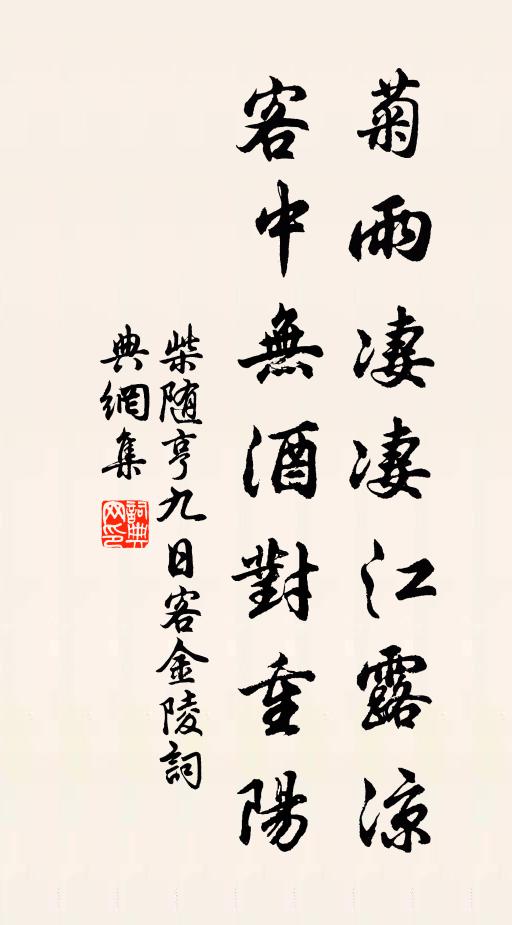 菊雨凄凄江露凉
客中無酒對重陽
柴随亨九日客金陵詞
典網集
詞典网印